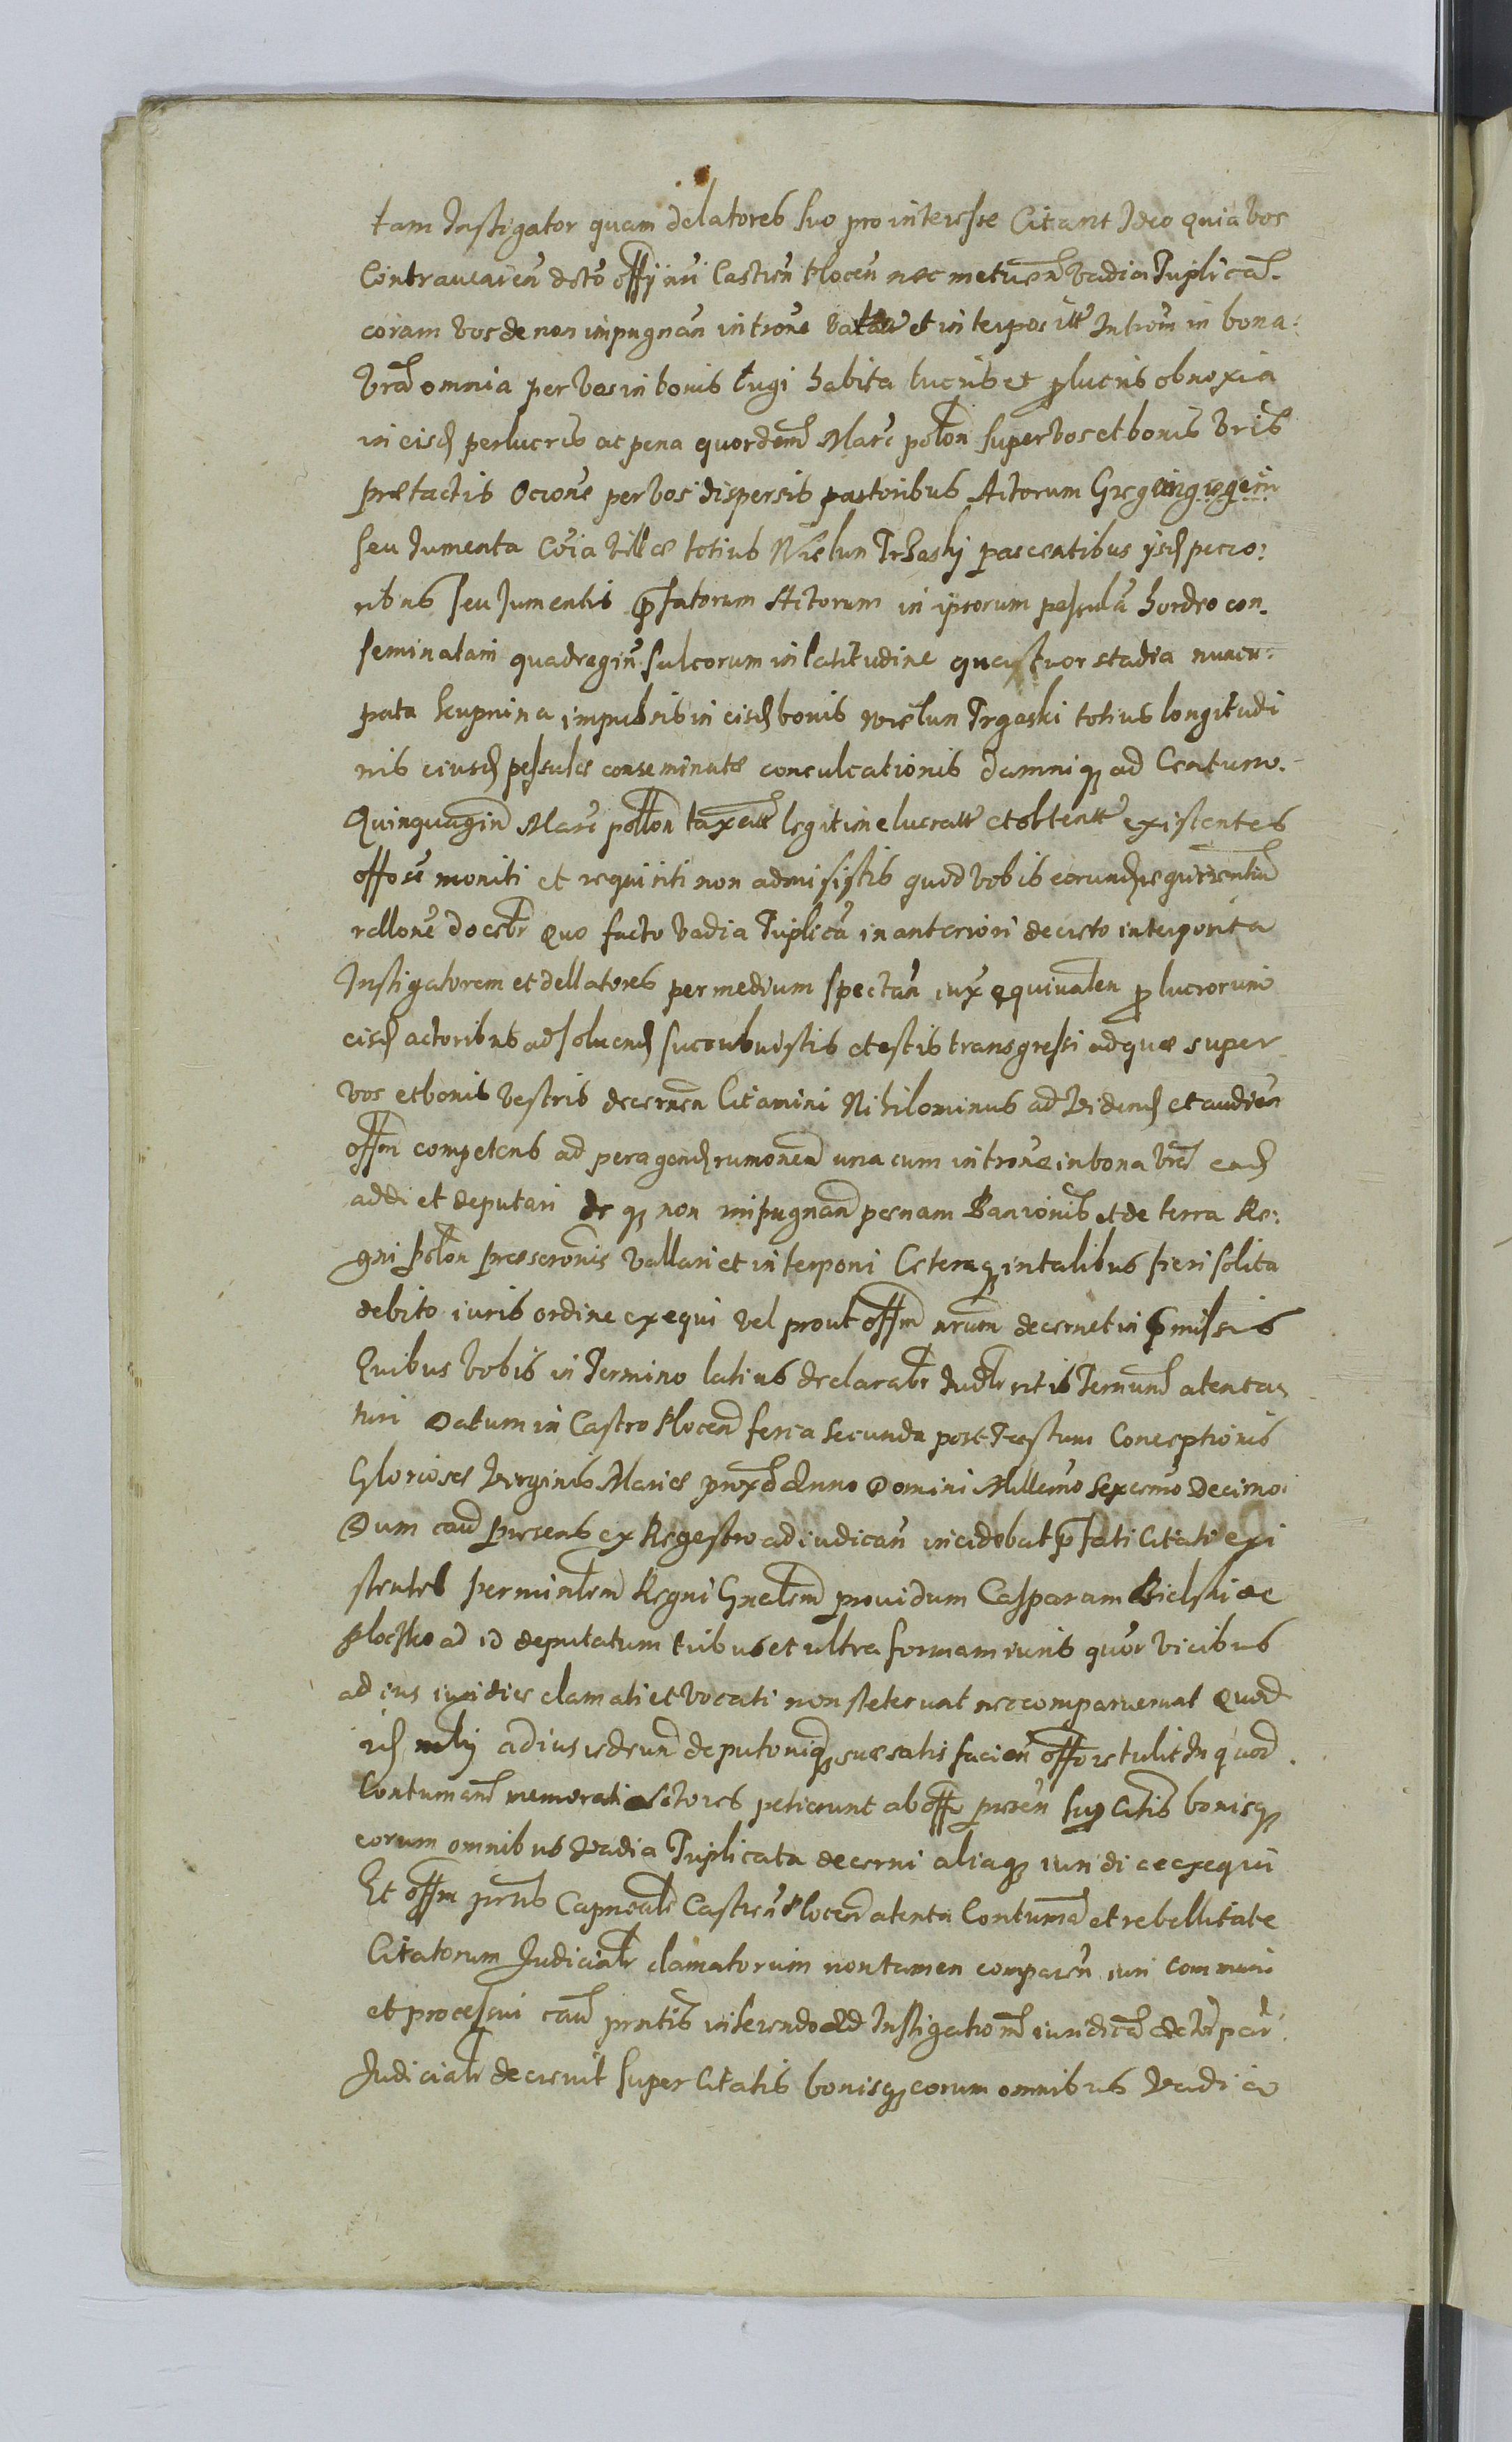 tam Instigator quam delatores suo pro interesse Citant Ideo quia vos
Contravenien dcto offy nri Castren Plocen nec metuen vadia Triplicat
coram vos de non impugnan introne vallata et interposita Introm in bona
vra omnia per vos in bonis Lugi habita lucris et plucris obnoxia
in eisd perlucris ac pena quordem Marc polon super vos et bonis vris
prætactis Ocione per vos dispersis pastoribus Actorum Greg
seu Jumenta Coia villæ totius Wielun Trzaski pascentibus ysd peco:
ribus seu Jumentis pfatorum Actorum in ipsorum pessula hordeo con
seminatam quadragin sulcorum in latitudine quatuor stadia nuncu:
pata impulsis in eisd bonis Wielun Trzaski totius longitudi
nis eiusd pessulæ conseminatæ conculcationis damniq ad Centum
Quinquagin Marc pollon taxatt legitime lucratt et obtentt existentes
offose moniti et requisiti non admisistis quod vobis eorund requirentium
rellone docebr Quo facto vadia Triplica in anteriori decreto interposita
Instigatorem et dellatores per medium spectan iux equivalen plucrorum
eisd actoribus ad soluend succubuistis et estis transgressi adque super
vos et bonis vestris decernen Citamini Nihilominus ad vidend et audien
offm competens ad peragend rumonem una cum introne in bona vra ead
addi et deputari de q non impugnan poenam Banionis et de terra Re:
gni polon proscronis vallari et interponi Ceteraq in talibus fieri solita
debito iuris ordine exequi vel prout offm nrum decernet in pmissis
Quibus vobis in Termino latius declarabr Judlr ritis Terminum atenta
turi Datum in Castro Plocen feria secunda post Festum Conceptionis
Gloriosæ Virginis Mariæ proxa Anno Domini Millemo Sexcmo Decimo
Dum caus præsens ex Regestro ad iudican incidebat pfati Citati exi
stentes per minlem Regni Gnalem providum Casparam Bielski de
Plocsko ad id deputatum tribus et ultra formam iuris quor vicibus
ad ius iuridice clamati et vocati non steterunt nec comparuerunt Quod
id mly ad ius redeun deputoniq suæ satis facien offo retulit In quod
Contumam memorati Actores petierunt ab offo presen sup Citis bonisq
eorum omnibus vadia Triplicata decerni aliaq iuridice exequi
Et offm prns Capnealr Castren Plocen atenta Contuma et rebellitate
Citatorum Judicialr clamatorum non tamen comparen iuri communi
et processui caus prntis inserendo ad Instigationem iuridica Actor par
Judicialr decrevit super Citatis bonisq eorum omnibus vadia